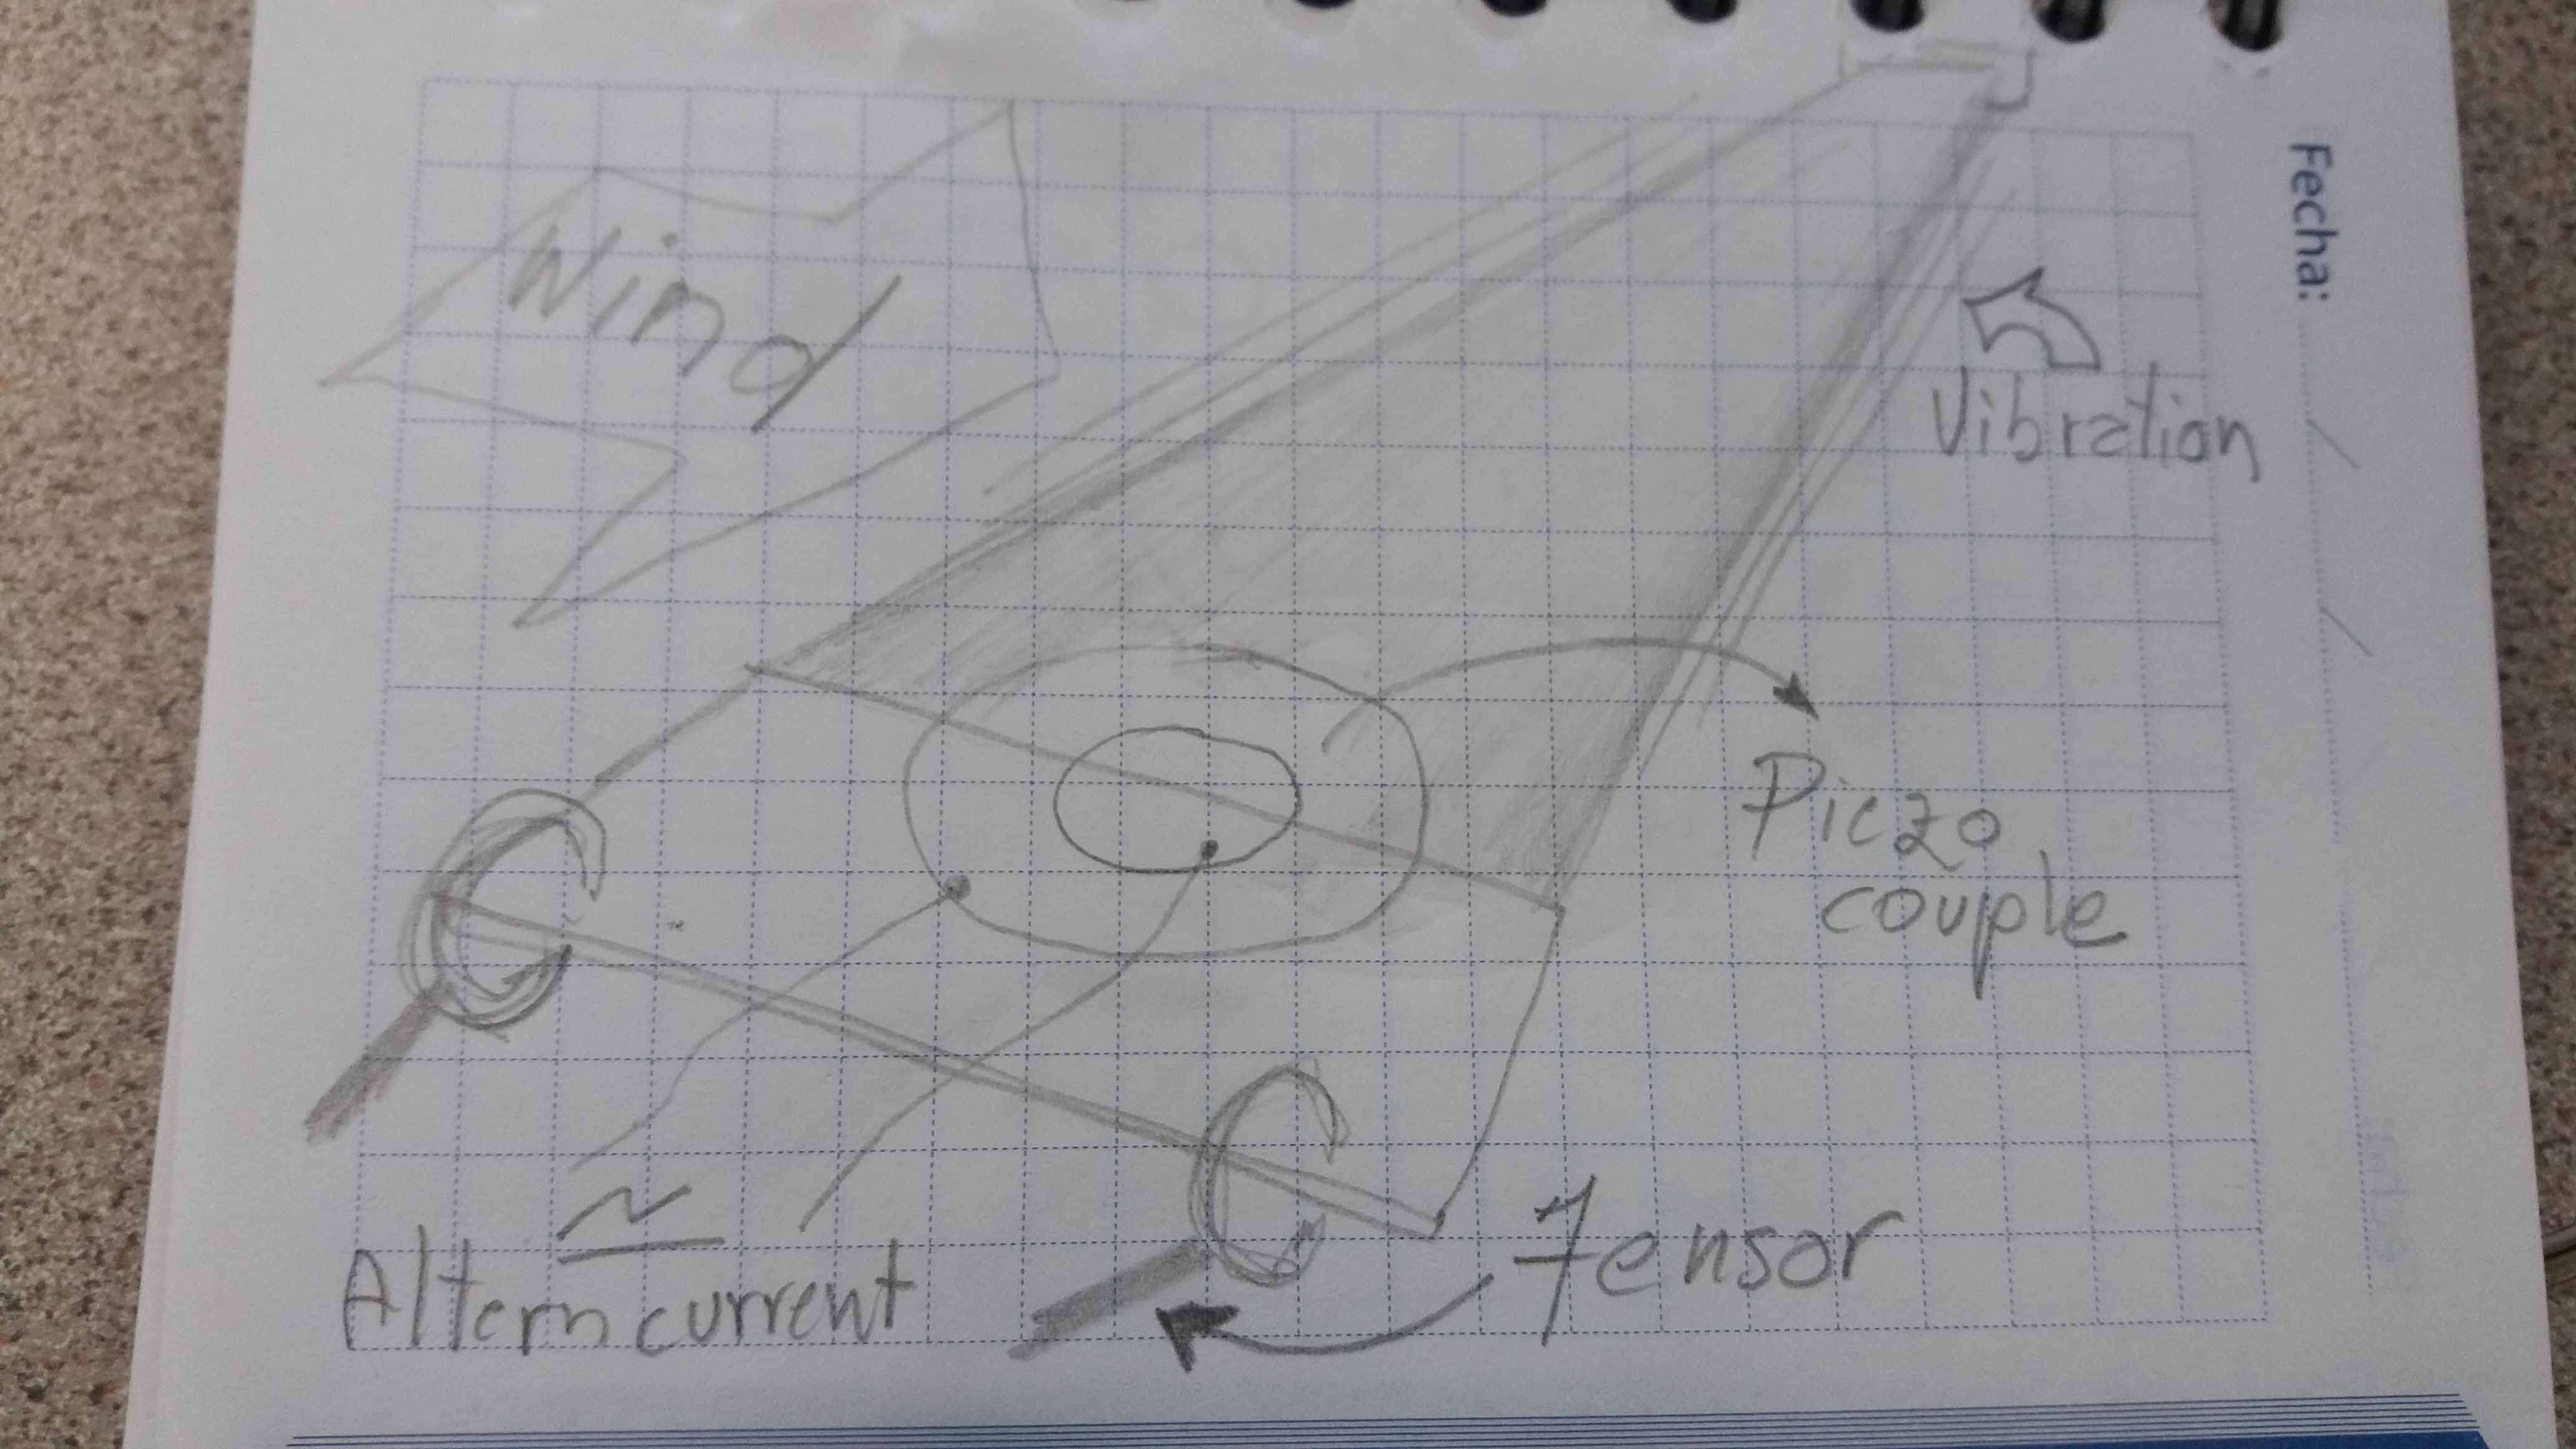 Fecha:
Wind
Vibration
Piezo
couple
Tensor
Altern current